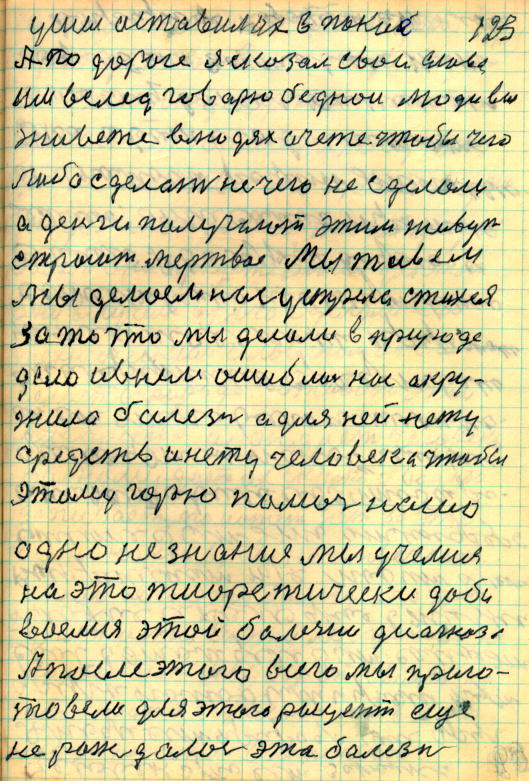 ушли оставил их в покие 125
А по дороге я сказал свои слова
им велед говарю бедноы люди вы
живете в людях а чете чтобы чего
либо сделать нечего не сделали
а денги получают этим живут
строют мертвое Мы живем
Мы делаем нас устрела стихея
за то что мы делали в природе
дело и в нем ошиблис нас акру-
жила балезн а для ней нету
средств и нету человека чтобы
этому горю памоч нашо
одно незнание мы учимся
на это тиоретически доби
ваемся этой балезни диагноз
А после этого всего мы приго-
товели для этого рыцепт еще
не рождалос эта балезн